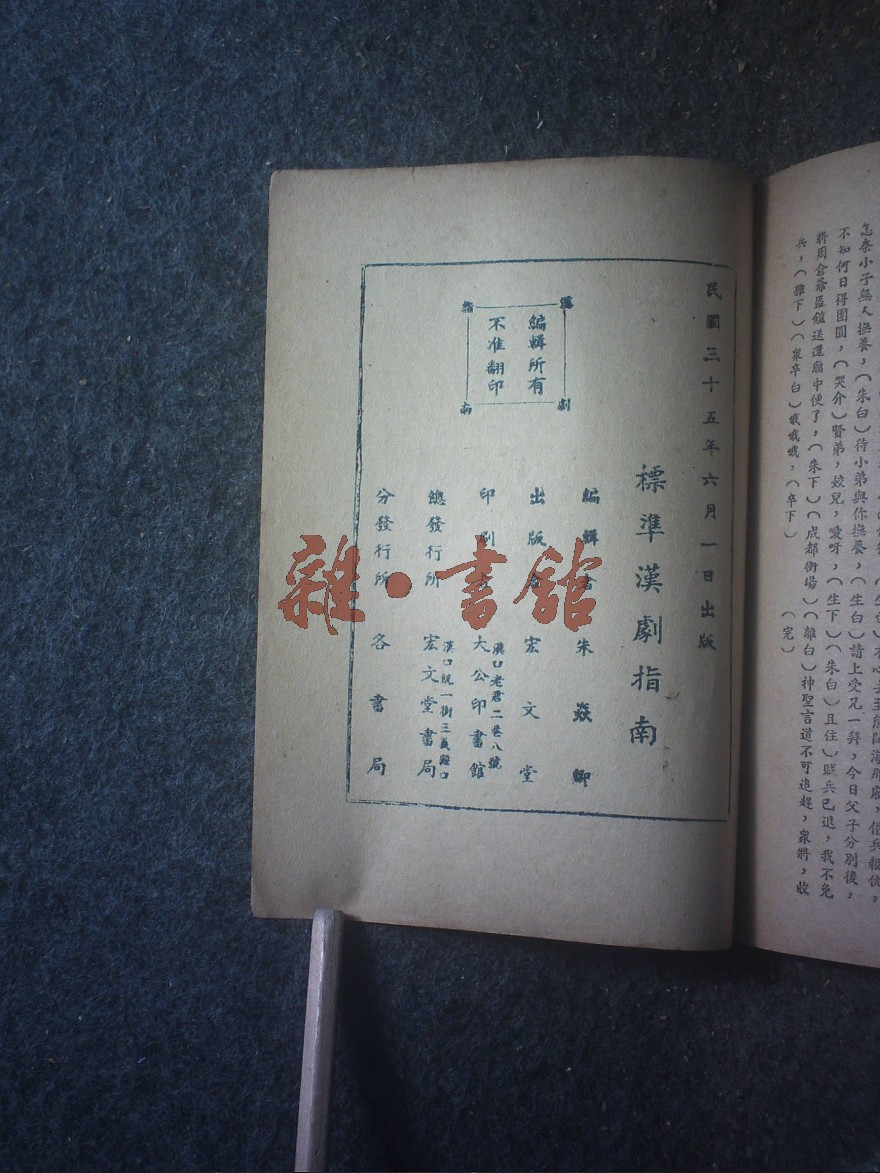 怎奈小子無人撫養，（朱白）待小弟與你撫養，（生白）請上受兄一拜，今日父子分別後，
不知何日得團圓，（哭介）賢弟，姣兒，愛呀，（生下）（朱白）且住）賊兵已退，我不免
將周倉爺盔鎧送還廟中便了，（朱下）（成都街場）（離白）神聖言道不可追趕，衆將，收
兵，（雜下）（衆卒白）哦哦哦，（卒下）
（完）
民國三十五年六月一日出版
標準漢劇指南
漢劇指南
編輯所有
不准翻印
編輯者 朱焱卿
出版 宏文堂
印刷 漢口老君二巷八號 大公印書館
總發行所 漢口統一街三義殿口 宏文堂書局
分發行所 各書局
雜·書館